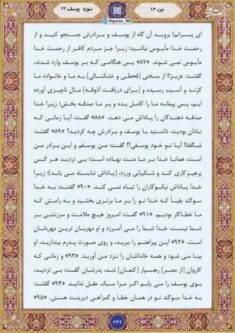 جزء ۱۳
سوره یوسف ۱۲
ای پسرانم! بروید آن گاه از یوسف و برادرش جستجو کنید و از
رحمت خدا مأیوس نباشید؛ زیرا جز مردم کافر از رحمت خدا
مأیوس نمی شوند. «۸۷» پس هنگامی که بر یوسف وارد شدند،
گفتند: عزیزا! از سختی (قحطی و خشکسالی) به ما و خانواده ما
گزند و آسیب رسیده و (برای دریافت آذوقه) مال ناچیزی آورده
ایم، پس پیمانه ما را کامل بده و بر ما صدقه بخش؛ زیرا خدا
صدقه دهندگان را پاداش می دهد. «۸۸» گفت: آیا زمانی که
نادان بودید، دانستید با یوسف و برادرش چه کردید؟ «۸۹» گفتند:
شگفتا! آیا تو خود یوسفی؟! گفت: من یوسفم و این برادر من
است، همانا خدا بر ما منت نهاده است؛ بی تردید هر کس
پرهیزکاری کند و شکیبایی ورزد، (پاداش شایسته می یابد)؛ زیرا
خدا پاداش نیکوکاران را تباه نمی کند. «۹۰» گفتند: به خدا
سوگند یقیناً که خدا تو را بر ما برتری بخشید و به راستی که
ما خطاکار بودیم. «۹۱» گفت: امروز هیچ ملامت و سرزنشی بر
شما نیست، خدا شما را می آمرزد و او مهربان ترین مهربانان
است. «۹۲» این پیراهنم را ببرید، و روی صورت پدرم بیندازید، او
بینا می شود و همه خاندانتان را نزد من آورید. «۹۳» و زمانی که
کاروان (از مصر) رهسپار (کنعان) شد، پدرشان گفت: بی تردید،
بوی یوسف را می یابم اگر مرا سبک عقل ندانید. «۹۴» گفتند:
به خدا سوگند تو در همان خطا و گمراهی دیرینت هستی. «۹۵»
۲۴۶